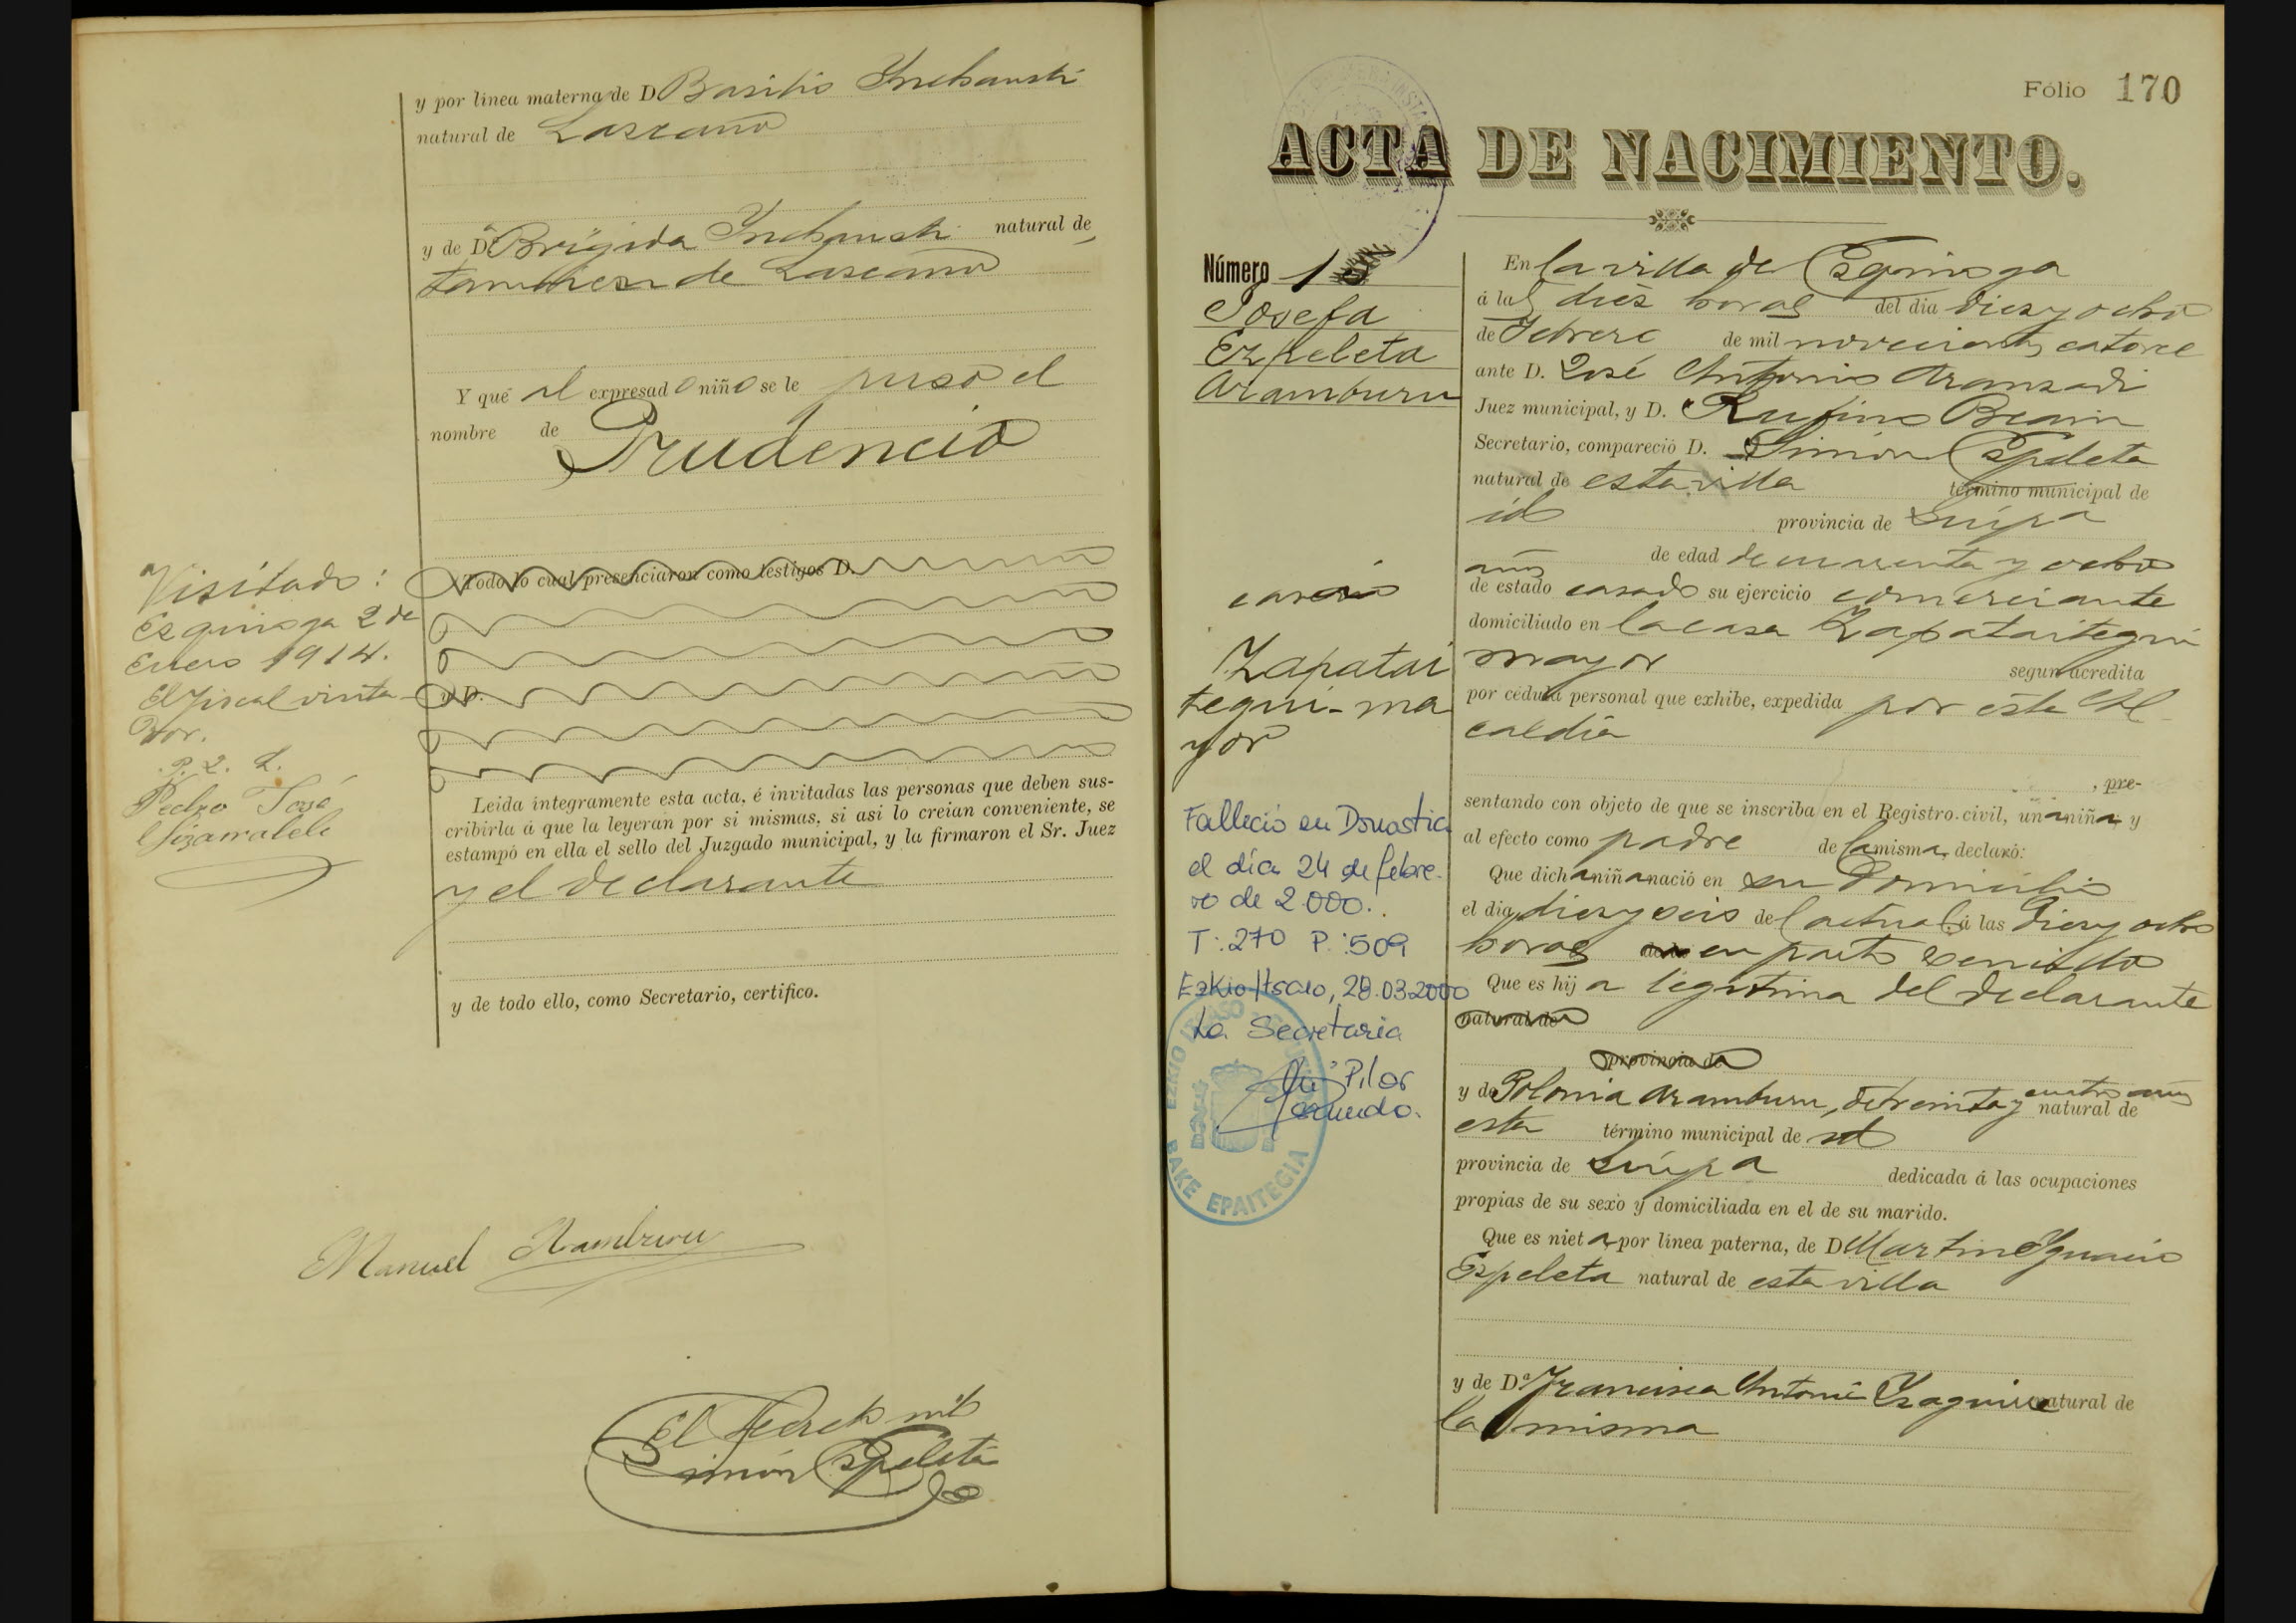 y por linea materna de D Basilio Ynchausti
natural de Lazcano
y de Dª Brígida Ynchausti natural de
tambien de Lazcano
Y que al expresado niño se le puso el
nombre de
Prudencio
Todo lo cual presenciaron como testigos D.
y D.
Leida integramente esta acta, é invitadas las personas que deben sus-
cribirla á que la leyeran por si mismas, si asi lo creian conveniente, se
estampó en ella el sello del Juzgado municipal, y la firmaron el Sr. Juez
y el declarante
y de todo ello, como Secretario, certifico.
Visitado:
Ezquioga 2 de
Enero 1914.
El Fiscal visita-
dor.
Pedro José
Manuel Aramburu
El
Simón Ezpeleta
Fólio 170
ACTA DE NACIMIENTO.
Número 1
Josefa
Ezpeleta
Aramburu
caserio
Zapatai
tegui-ma
yor
Falleció en Donostia
el día 24 de febre-
ro de 2.000..
T: 270 P: 509
Ezkio/Itsaso, 28.03.2000
La Secretaria
Mª Pilar
BAKE EPAITEGIA
En la villa de Ezquioga
á las diez horas del dia diez y ocho
de Febrero de mil novecientos catorce
ante D. José Antonio Aranzadi
Juez municipal, y D. Rufino Beain
Secretario, compareció D. Simón Ezpeleta
natural de esta villa término municipal de
id provincia de Guipa
de edad de cuarenta y ocho
años
de estado casado su ejercicio comerciante
domiciliado en la casa Zapataitegui
mayor segun acredita
por cédula personal que exhibe, expedida por esta Al-
caldía
, pre-
sentando con objeto de que se inscriba en el Registro civil, una niña y
al efecto como padre de la misma, declaró:
Que dicha niña nació en su domicilio
el dia diez y seis del actual á las diez y ocho
horas en parto sencillo
Que es hija legítima del declarante
natural de
provincia de
y de Polonia Aramburu, de treinta y cuatro años natural de
esta término municipal de id
provincia de Guipa dedicada á las ocupaciones
propias de su sexo y domiciliada en el de su marido.
Que es nieta por línea paterna, de D Martin Ygnacio
Ezpeleta natural de esta villa
y de Dª Francisca Antonia Yzaguirre natural de
la misma